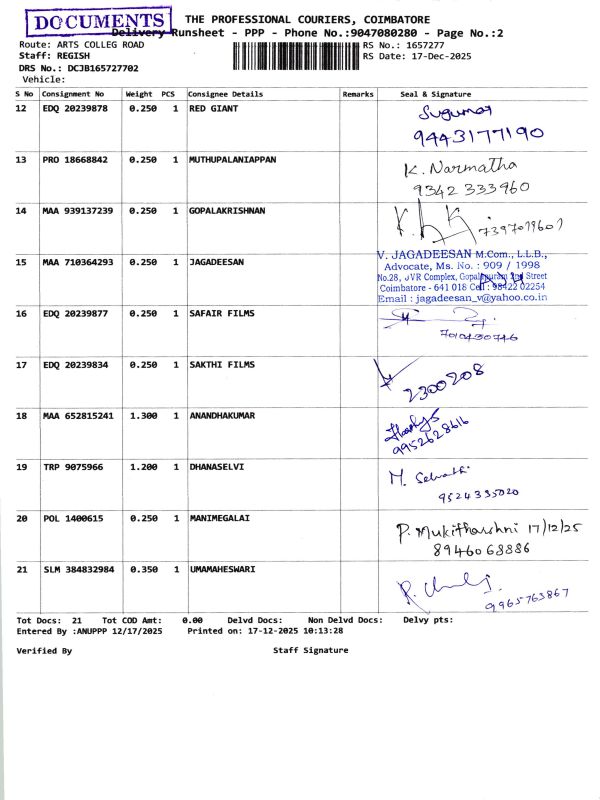 DOCUMENTS
THE PROFESSIONAL COURIERS, COIMBATORE
Delivery Runsheet - PPP - Phone No.:9047080280 - Page No.:2
Route: ARTS COLLEG ROAD
Staff: REGISH
DRS No.: DCJB165727702
Vehicle:
RS No.: 1657277
RS Date: 17-Dec-2025
S No Consignment No Weight PCS Consignee Details Remarks Seal & Signature
12 EDQ 20239878 0.250 1 RED GIANT Sugumar
9443177190
13 PRO 18668842 0.250 1 MUTHUPALANIAPPAN K. Narmatha
9342 333960
14 MAA 939137239 0.250 1 GOPALAKRISHNAN
15 MAA 710364293 0.250 1 JAGADEESAN
V. JAGADEESAN M.Com., L.L.B.,
Advocate, Ms. No. : 909 / 1998
No.28, JVR Complex, Gopalapuram 2nd Street
Coimbatore - 641 018 Cell : 98422 02254
Email : jagadeesan_v@yahoo.co.in
16 EDQ 20239877 0.250 1 SAFAIR FILMS
17 EDQ 20239834 0.250 1 SAKTHI FILMS
2300208
18 MAA 652815241 1.300 1 ANANDHAKUMAR
9952628616
19 TRP 9075966 1.200 1 DHANASELVI
9524335020
20 POL 1400615 0.250 1 MANIMEGALAI P. Mukitharshni 17/12/25
8946068886
21 SLM 384832984 0.350 1 UMAMAHESWARI
9965763867
Tot Docs: 21 Tot COD Amt: 0.00 Delvd Docs: Non Delvd Docs: Delvy pts:
Entered By :ANUPPP 12/17/2025 Printed on: 17-12-2025 10:13:28
Verified By Staff Signature